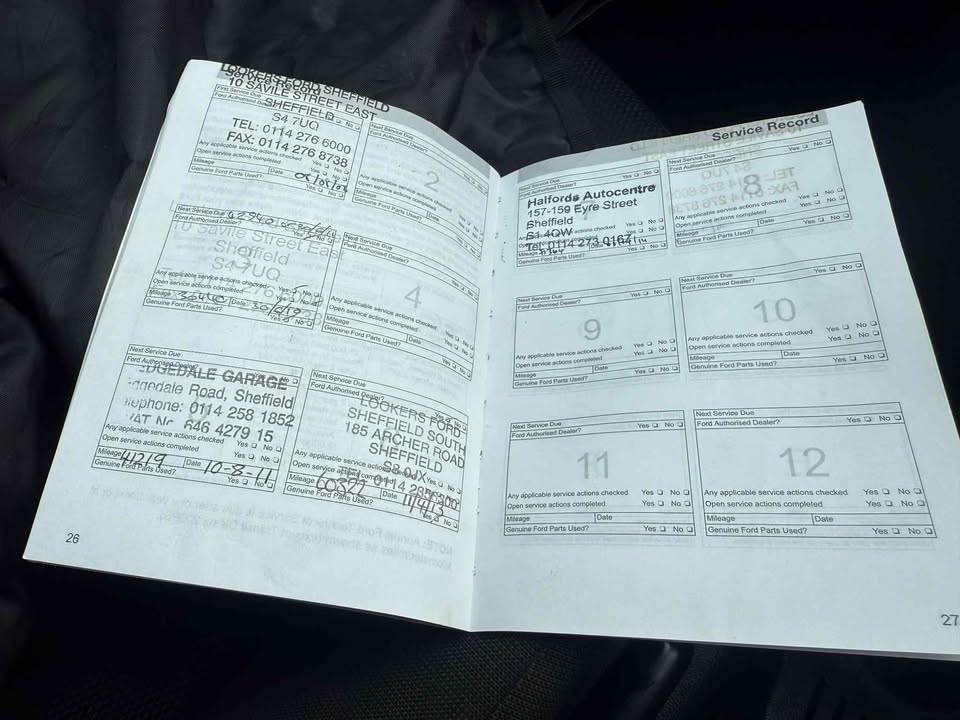 LOOKERS FORD SHEFFIELD
10 SAVILE STREET EAST
SHEFFIELD
S4 7UQ
TEL: 0114 276 6000
FAX: 0114 276 8738
First Service Due
Ford Authorised Dealer?
Yes No
Any applicable service actions checked Yes No
Open service actions completed Yes No
Mileage Date
Genuine Ford Parts Used?
Next Service Due
Ford Authorised Dealer? Yes No
2
Any applicable service actions checked
Open service actions completed
Mileage Date
Genuine Ford Parts Used? Yes No
Next Service Due
Ford Authorised Dealer?
10 Savile Street East
Sheffield
S4 7UQ
Any applicable service actions checked
Open service actions completed
Mileage 36440 Date
Genuine Ford Parts Used? Yes No
Next Service Due
Ford Authorised Dealer? Yes No
4
Any applicable service actions checked
Open service actions completed
Mileage Date
Genuine Ford Parts Used? Yes No
Next Service Due
Ford Authorised Dealer?
EDGEDALE GARAGE
Road, Sheffield
0114 258 1852
646 4279 15
Any applicable service actions checked Yes No
Open service actions completed Yes No
Mileage 41219 Date 10-8-11
Genuine Ford Parts Used? Yes No
Next Service Due
Ford Authorised Dealer?
LOOKERS FORD
SHEFFIELD SOUTH
185 ARCHER ROAD
SHEFFIELD
S8 0JX
Any applicable service actions checked
Open service actions completed
Mileage Date
Genuine Ford Parts Used? No
26
Service Record
Next Service Due
Ford Authorised Dealer? Yes No
Halfords Autocentre
157-159 Eyre Street
Sheffield
S1 4QW
Tel: 0114 273
Any applicable service actions checked Yes No
Mileage
Genuine Ford Parts Used? Yes No
Next Service Due
Ford Authorised Dealer? Yes No
8
Any applicable service actions checked Yes No
Open service actions completed Yes No
Mileage Date
Genuine Ford Parts Used? Yes No
Next Service Due
Ford Authorised Dealer? Yes No
9
Any applicable service actions checked Yes No
Open service actions completed Yes No
Mileage Date
Genuine Ford Parts Used? Yes No
Next Service Due
Ford Authorised Dealer? Yes No
10
Any applicable service actions checked Yes No
Open service actions completed Yes No
Mileage Date
Genuine Ford Parts Used? Yes No
Next Service Due
Ford Authorised Dealer? Yes No
11
Any applicable service actions checked Yes No
Open service actions completed Yes No
Mileage Date
Genuine Ford Parts Used? Yes No
Next Service Due
Ford Authorised Dealer? Yes No
12
Any applicable service actions checked Yes No
Open service actions completed Yes No
Mileage Date
Genuine Ford Parts Used? Yes No
27